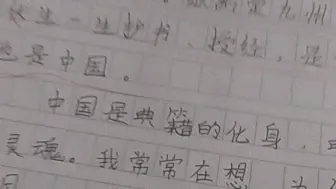 九州
一生抄书、授经，是
也是中国。
中国是典籍的化身，
灵魂。我常常在想